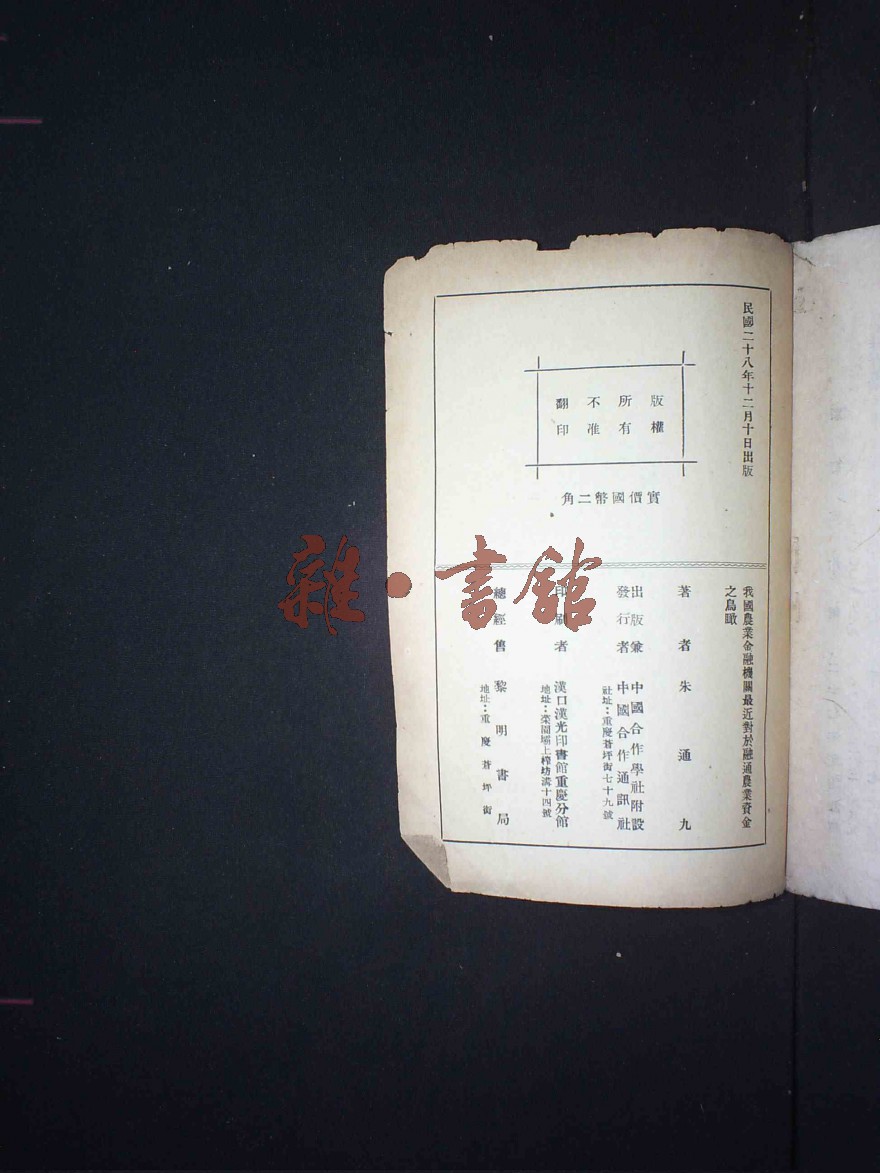 民國二十八年十二月十日出版
版權
所有
不准
翻印
實價國幣二角
我國農業金融機關最近對於融通農業資金
之鳥瞰
著者 朱通九
出版兼 中國合作學社附設
發行者 中國合作通訊社
社址：重慶蒼坪街七十九號
印刷者 漢口漢光印書館重慶分館
地址：菜園壩上榨坊溝十四號
總經售 黎明書局
地址：重慶蒼坪街
雜·書館